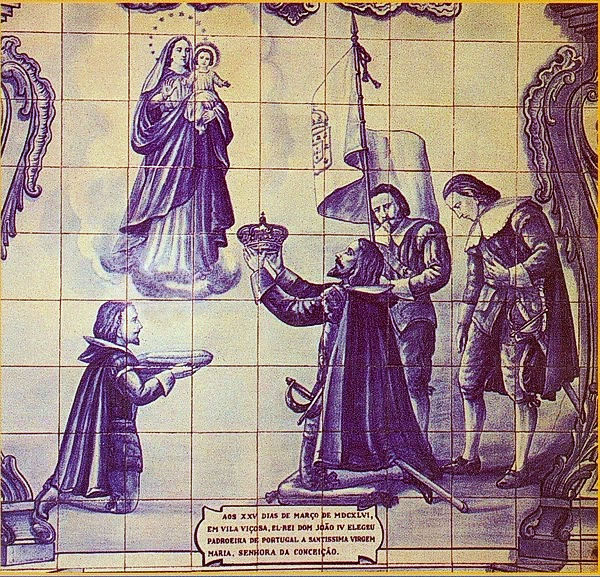 AOS XXV DIAS DE MARÇO DE MDCXLVI,
EM VILA VIÇOSA, EL-REI DOM JOÃO IV ELEGEU
PADROEIRA DE PORTUGAL A SANTISSIMA VIRGEM
MARIA, SENHORA DA CONCEIÇÃO.